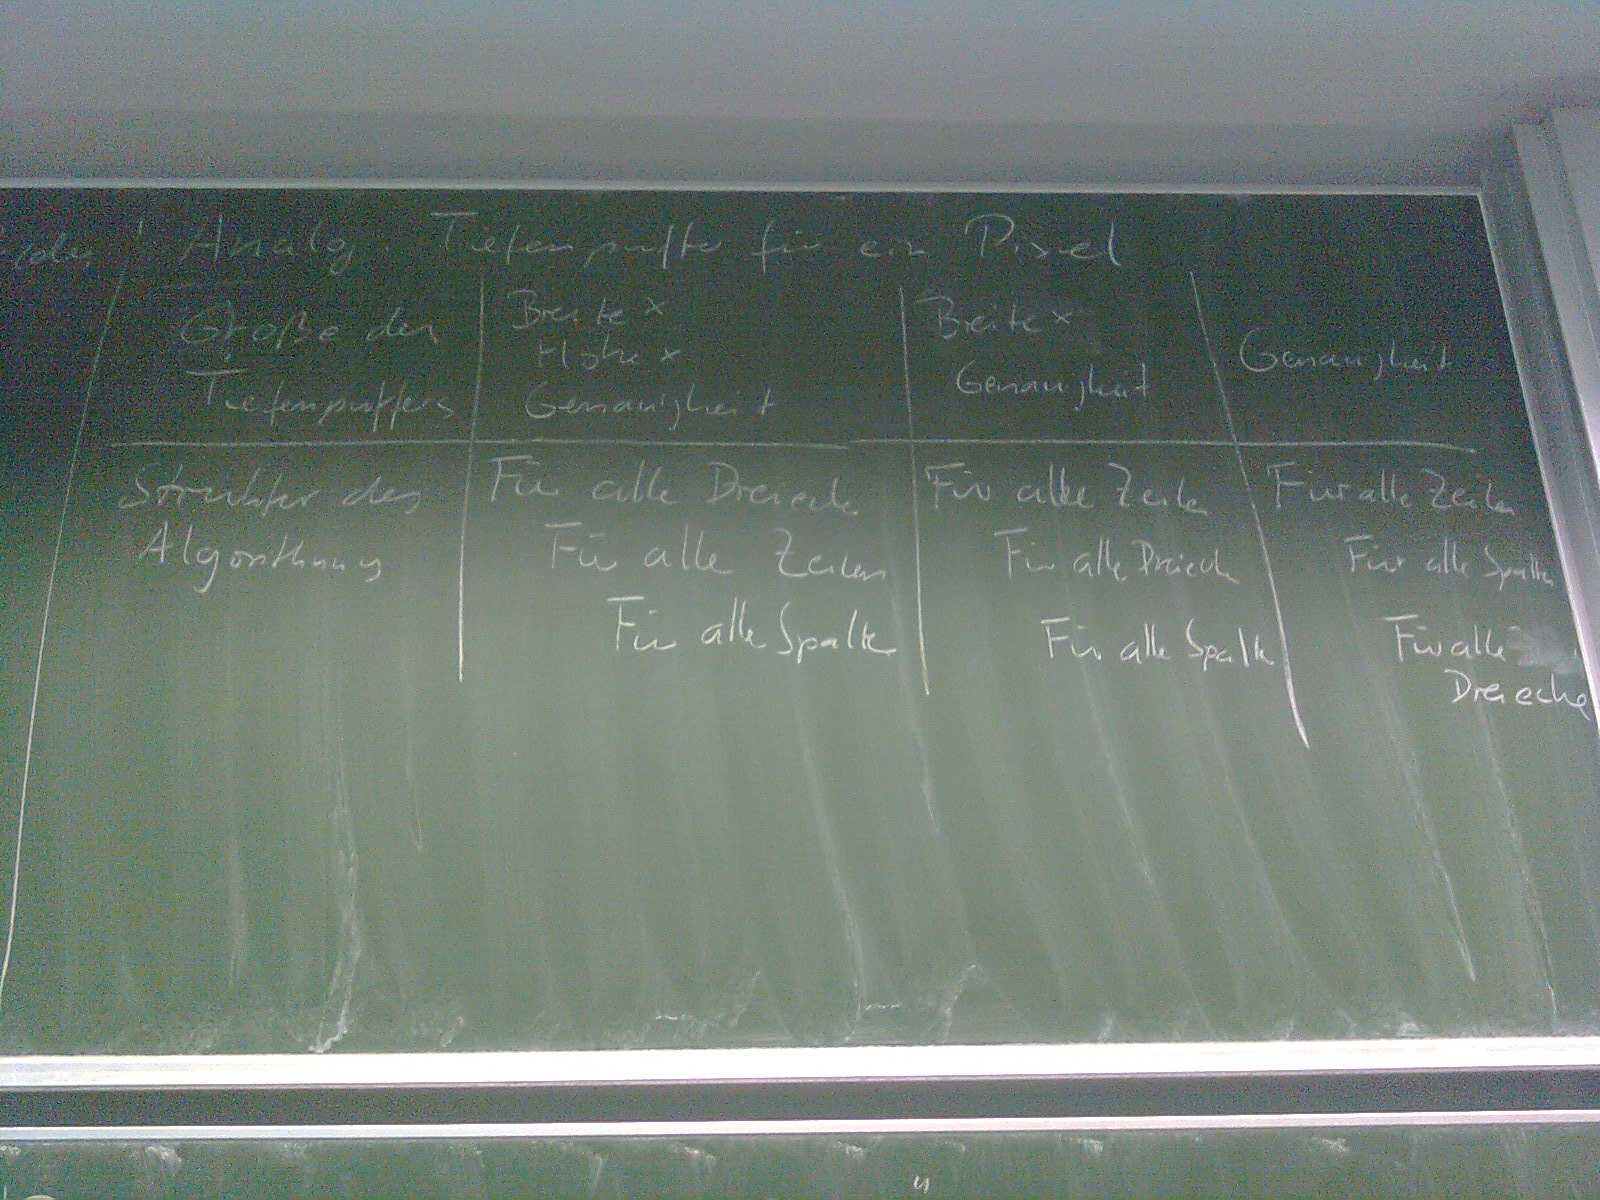 Analog. Tiefenpuffer für ein Pixel
Größe des
Tiefenpuffers
Breite x
Höhe x
Genauigkeit
Breite x
Genauigkeit
Genauigkeit
Struktur des
Algorithmus
Für alle Dreiecke
Für alle Zeilen
Für alle Spalte
Für alle Zeile
Für alle Dreiecke
Für alle Spalte
Für alle Zeilen
Für alle Spalten
Für alle
Dreiecke